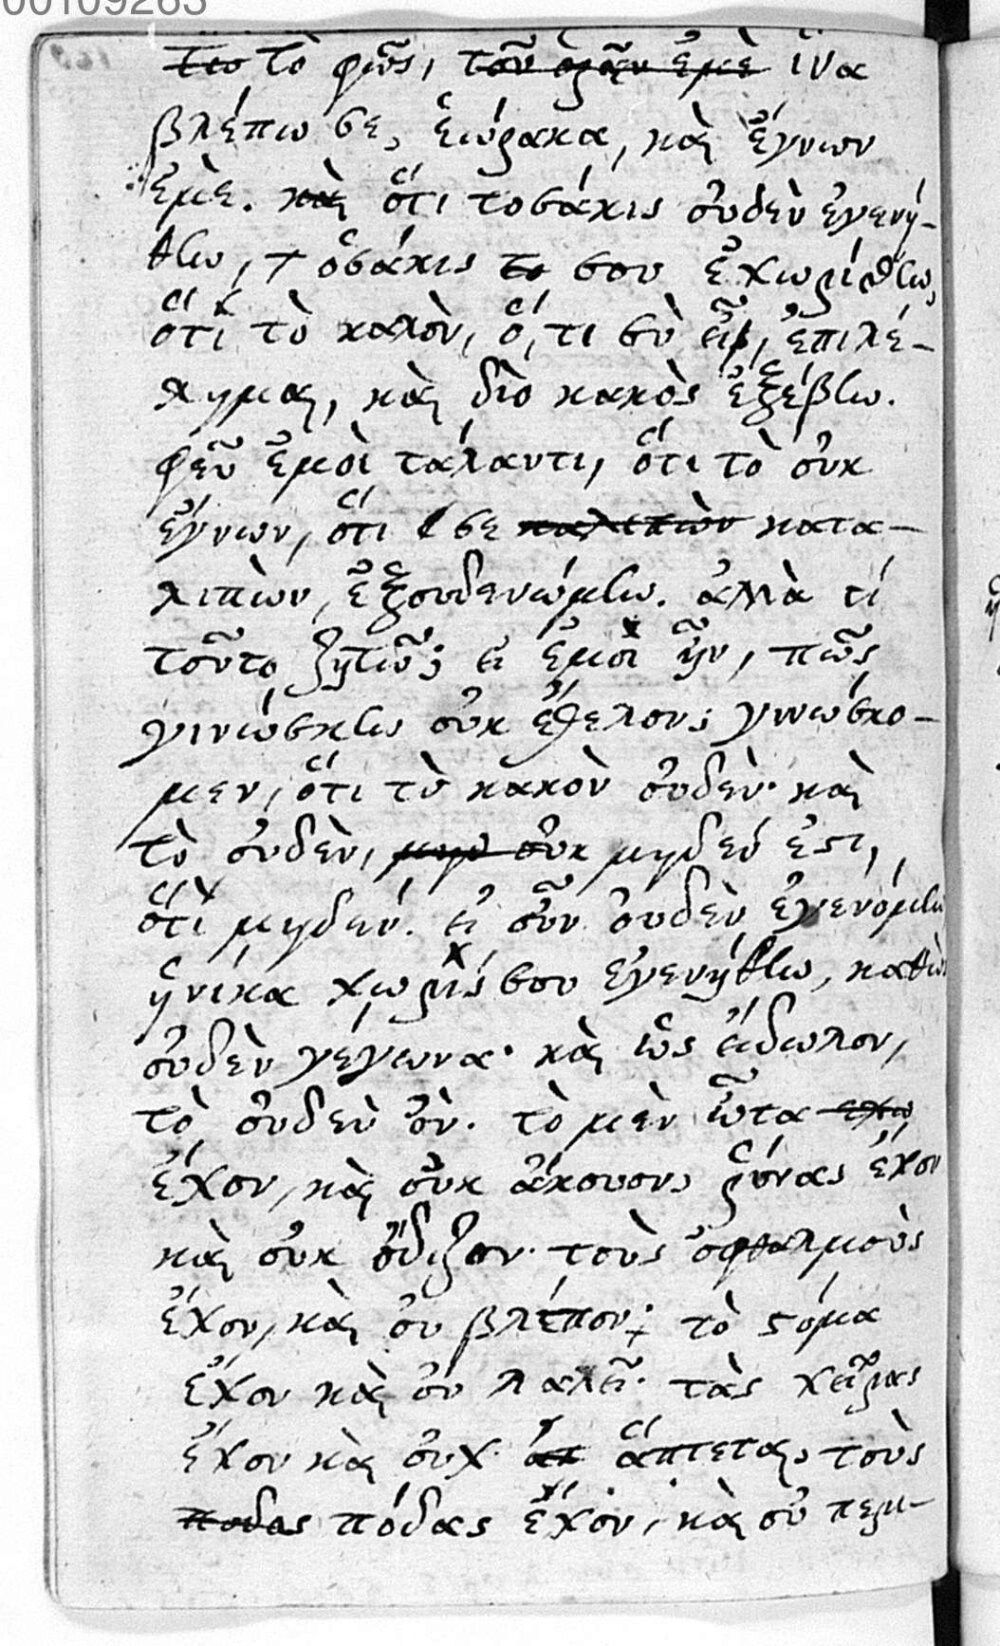 00109263
τιο τὸ φῶς, τοῦ ὁρᾶν ἐμὲ ἵνα
βλέπω σε, ἑώρακα, καὶ ἔγνων
ἐμὲ. καὶ ὅτι τοσάκις οὐδὲν ἐγενή-
θην, + ὁσάκις το σου ἐχωρίσθην,
ὅτι τὸ καλὸν, ὅ, τι σὺ εἶ, ἐπιλέ-
λημαι, καὶ διὸ κακὸς ἐξέβην.
φεῦ ἐμοὶ τάλαντι, ὅτι τὸ οὐκ
ἔγνων, ὅτι σε καλιπὼν κατα-
λιπὼν, ἐξουδενώμην. ἀλλὰ τί
τοῦτο ζητῶ; εἰ ἐμοὶ ἦν, πῶς
γινώσκειν οὐκ ἔθελον; γινώσκο-
μεν, ὅτι τὸ κακὸν οὐδὲν· καὶ
τὸ οὐδὲν, μην οὐκ μηδέν ἐστι,
ὅτι μηδέν. εἰ οὖν οὐδὲν ἐγενόμην
ἡνίκα χωρίς σου ἐγενήθην, καθὼς
οὐδὲν γέγωνα· καὶ ὡς εἴδωλον,
τὸ οὐδὲν ὂν. τὸ μὲν ὦτα εχω
ἔχον, καὶ οὐκ ἄκουον, ῥῖνας ἔχον
καὶ οὐκ ὄδιζον· τοὺς ὀφθαλμοὺς
ἔχον, καὶ οὐ βλέπον; τὸ στόμα
ἔχον καὶ οὐ λαλεῖ· τὰς χεῖρας
ἔχον καὶ οὐχ ἁπ ἅπτεται, τοὺς
ποδας πόδας ἔχον, καὶ οὐ περι-